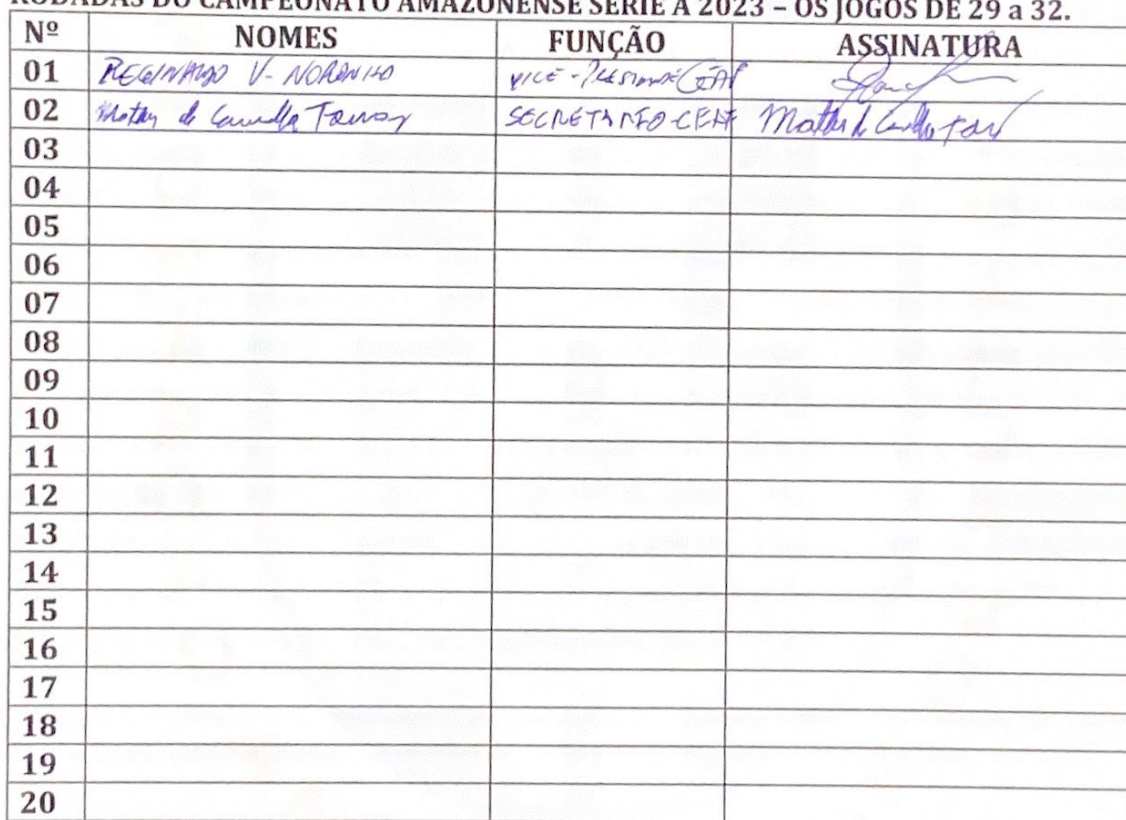 RODADAS DO CAMPEONATO AMAZONENSE SÉRIE A 2023 – OS JOGOS DE 29 a 32.
Nº NOMES FUNÇÃO ASSINATURA
01 REGINALDO V. NORONHA VICE-PRESIDENTE CEAF
02 de Carvalho SECRETARIO-CEAF
03
04
05
06
07
08
09
10
11
12
13
14
15
16
17
18
19
20